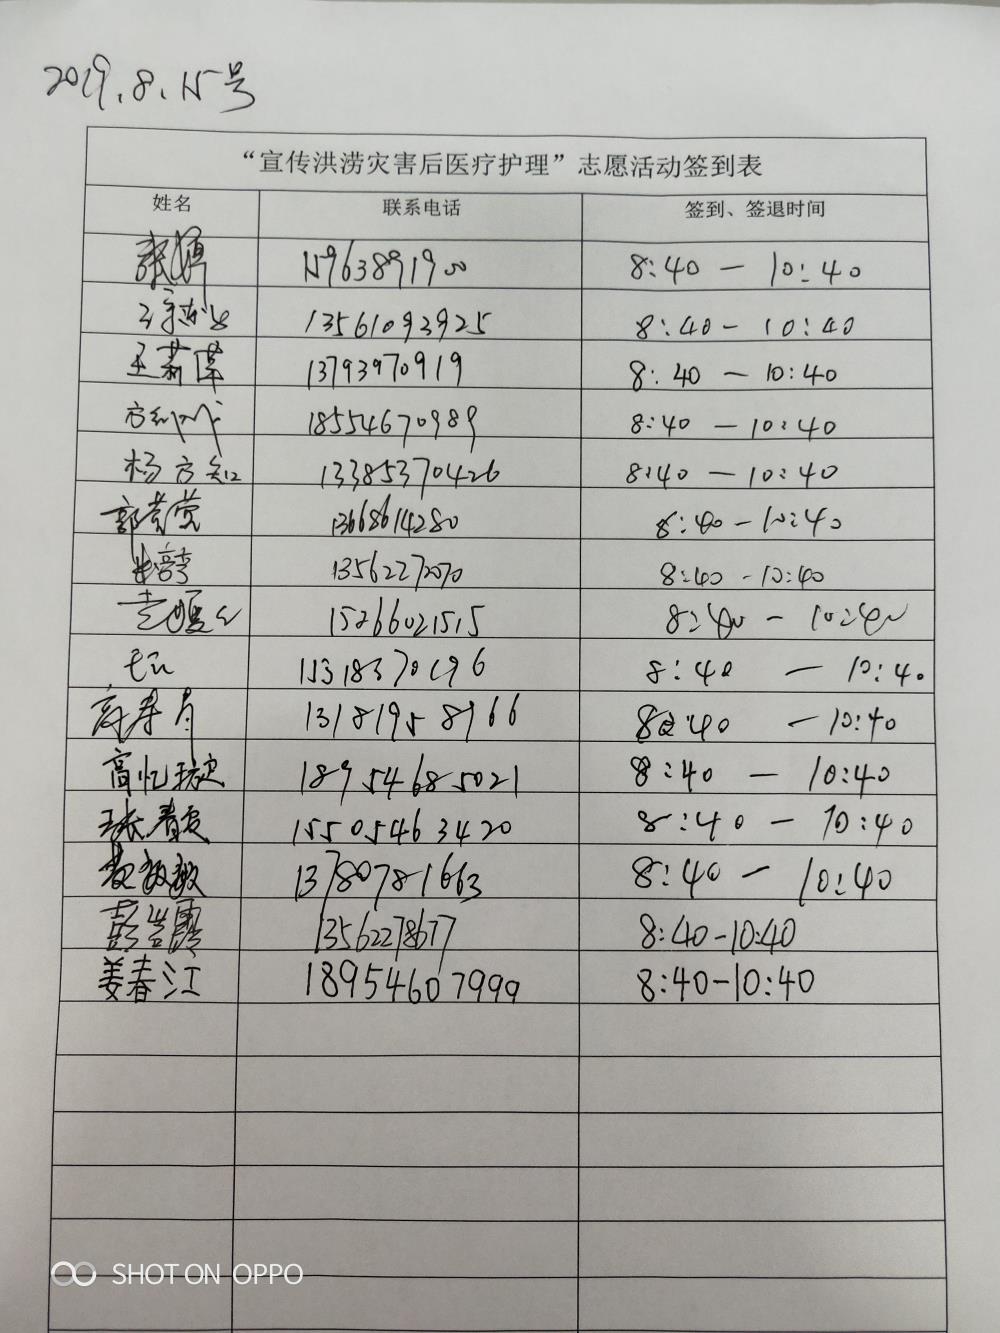 2019.8.15号
“宣传洪涝灾害后医疗护理”志愿活动签到表
姓名 联系电话 签到、签退时间
15963891900 8:40 — 10:40
13561093925 8:40 - 10:40
王莉萍 13793970919 8:40 — 10:40
18554670989 8:40 — 10:40
杨方 13385370426 8:40 — 10:40
郭莹莹 13668614280 8:40 - 10:40
13562272070 8:40 - 10:40
15266021515 8:40 - 10:40
8:40 — 10:40
13181958966 8:40 — 10:40
高忆 18954685021 8:40 — 10:40
15505463420 8:40 — 10:40
13780781663 8:40 — 10:40
彭岩霞 13562278677 8:40-10:40
姜春江 18954607999 8:40-10:40
SHOT ON OPPO